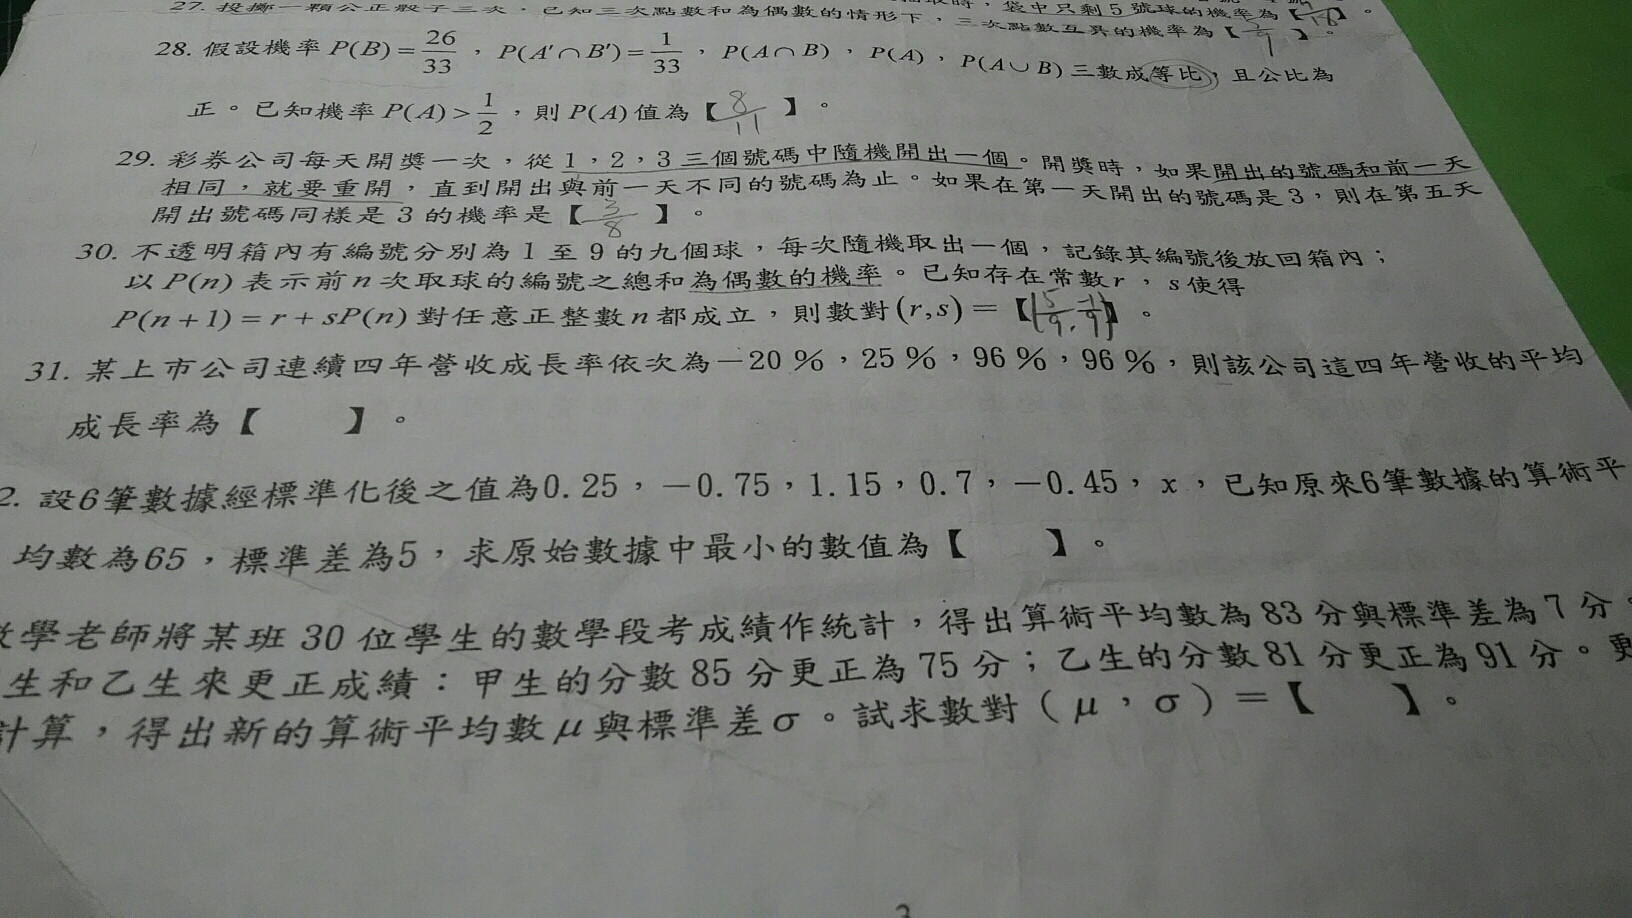 27. 投擲一顆公正骰子三次，已知三次點數和為偶數的情形下，三次點數互異的機率為【 】。
袋中只剩5號球的機率為【 】。
28. 假設機率P(B)=26/33，P(A'∩B')=1/33，P(A∩B)，P(A)，P(A∪B)三數成等比，且公比為
正。已知機率P(A)>1/2，則P(A)值為【8/11】。
29. 彩券公司每天開獎一次，從1，2，3三個號碼中隨機開出一個。開獎時，如果開出的號碼和前一天
相同，就要重開，直到開出與前一天不同的號碼為止。如果在第一天開出的號碼是3，則在第五天
開出號碼同樣是3的機率是【3/8】。
30. 不透明箱內有編號分別為1至9的九個球，每次隨機取出一個，記錄其編號後放回箱內；
以P(n)表示前n次取球的編號之總和為偶數的機率。已知存在常數r，s使得
P(n+1)=r+sP(n)對任意正整數n都成立，則數對(r,s)=【(5/9,-1/9)】。
31. 某上市公司連續四年營收成長率依次為-20%，25%，96%，96%，則該公司這四年營收的平均
成長率為【 】。
2. 設6筆數據經標準化後之值為0.25，-0.75，1.15，0.7，-0.45，x，已知原來6筆數據的算術平
均數為65，標準差為5，求原始數據中最小的數值為【 】。
學老師將某班30位學生的數學段考成績作統計，得出算術平均數為83分與標準差為7分。
生和乙生來更正成績：甲生的分數85分更正為75分；乙生的分數81分更正為91分。更
計算，得出新的算術平均數μ與標準差σ。試求數對（μ，σ）=【 】。
3